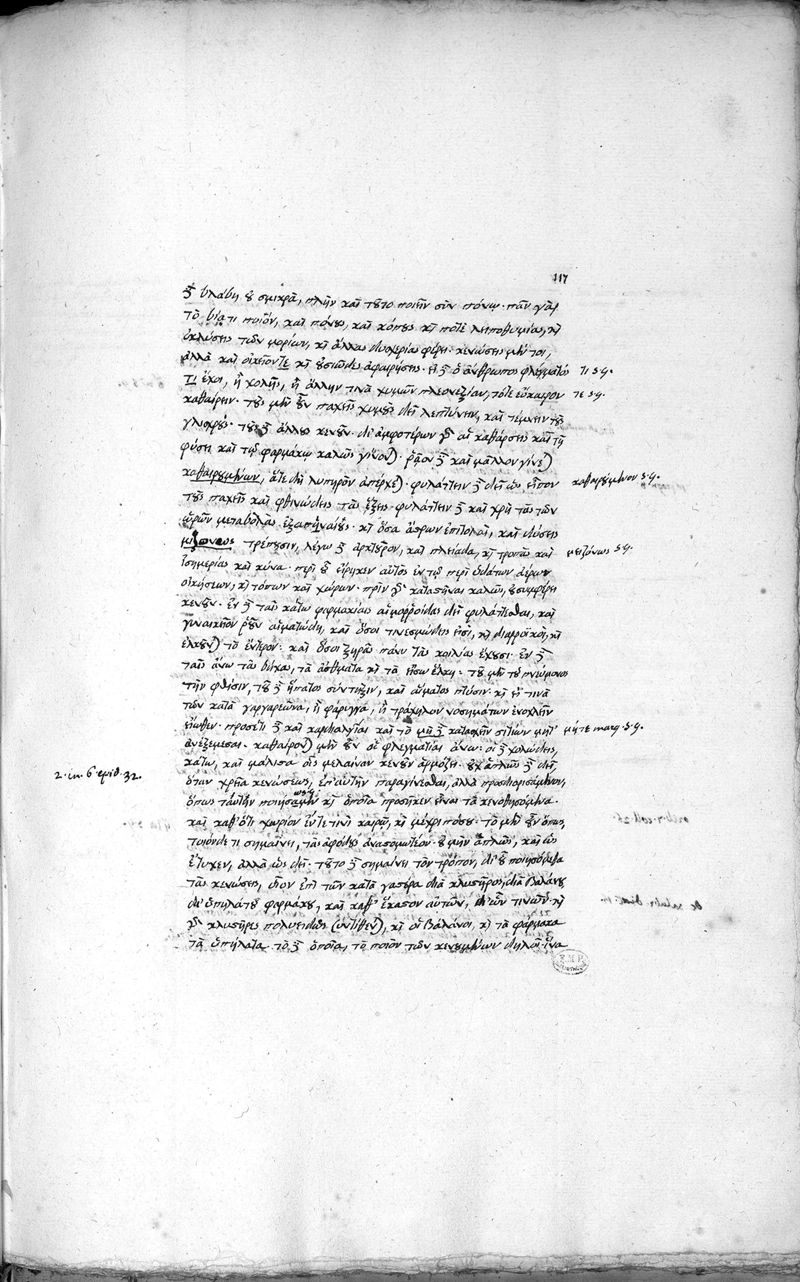 117
δὲ βλάβη οὐ σμικρὰ, πλὴν καὶ τοῦτο ποιεῖν σὺν πόνῳ· πᾶν γὰρ
τὸ βίᾳ τι ποιοῦν, καὶ πόνους, καὶ κόπους καὶ ποτὲ λειποθυμίας, καὶ
ἐκλύσεις τῶν μορίων, καὶ ἄλλας δυσχερίας φέρει· κενώσεις μέν τοι,
ἀλλὰ καὶ οἰκεῖόν τε καὶ οὐσιῶδες ἀφαιρήσεις· εἰ δὲ ὁ ἄνθρωπος φλέγματός τι s.g.
τι ἔχοι, ἢ χολῆς, ἢ ἄλλην τινὰ χυμῶν πλεονεξίαν, τότε εὔκαιρον τε s.g.
καθαίρειν· τοὺς μὲν οὖν παχεῖς χυμοὺς δεῖ λεπτύνειν, καὶ τέμνειν τοὺς
γλίσχρους· τοὺς δὲ ἄλλους κενοῦν· δι' ἀμφοτέρων γὰρ αἱ καθάρσεις καὶ τῇ
φύσει καὶ τῷ φαρμάκῳ καλῶς γίνον)· ῥᾷον δὲ καὶ μᾶλλον γίνε)
καθαιρουμένων, ἅτε δὴ λυπηρὸν ἀπέρχε)· φυλάττειν δὲ δεῖ ὡς εἶπον καθαιρούμενον s.g.
τοὺς παχεῖς καὶ φθινώδεις τὰς ἕξεις· φυλάττειν δὲ καὶ χρὴ τὰς τῶν
ὡρῶν μεταβολὰς ἐξαπιναίους· καὶ ὅσα ἄστρων ἐπιτολαὶ, καὶ δύσεις
μειζόνως τρέπουσιν, λέγω δὲ ἀρκτοῦρον, καὶ πλειάδα, καὶ τροπὰς καὶ μειζόνως s.g.
ἰσημερίας καὶ κύνα· περὶ οὗ εἴρηκεν αὐτὸς ἐν τῷ περὶ ὑδάτων ἀέρων
οἰκήσεων, καὶ τόπων καὶ χώρων· πρὶν γὰρ καταστῆναι καλῶς, οὐ συμφέρει
κενοῦν· ἐν δὲ ταῖς κάτω φαρμακίαις αἱμοῤῥοίδας δεῖ φυλάττεσθαι, καὶ
γυναικεῖον ῥοῦν αἱματώδη, καὶ ὅσοι τινεσμώδεις εἰσὶ, καὶ διαῤῥοϊκοὶ, καὶ
ἑλκοῦν) τὸ ἔντερον· καὶ ὅσοι ξηρὰς πάνυ τὰς κοιλίας ἔχουσι· ἐν δὲ
ταῖς ἄνω τὰς βῆχας, τὰ ἄσθματα καὶ τὰ εἴσω ἕλκη· τοῦ μὲν τοῦ πνεύμονος
τὴν φθίσιν, τοῦ δὲ ἥπατος σύντηξιν, καὶ αἵματος πτύσιν· καὶ εἴ τινα
τῶν κατὰ γαργαρεῶνα, ἢ φάρυγγα, ἢ τράχηλον νοσημάτων ἐνοχλεῖν
εἴωθεν· προσέτι δὲ καὶ καρδιαλγίας καὶ τὸ μὴ δὲ κατασχεῖν σιτίων μητ' μήτε marg. s.g.
ἀνεξεμέσαι· καθαίρον) μὲν οὖν οἱ φλεγματίαι ἄνω· οἱ δὲ χολώδεις,
κάτω, καὶ μάλιστα οἷς μέλαιναν κενοῦν ἁρμόζει· οὐχ ἁπλῶς δὲ δεῖ,
2. in. 6 epid. 32. ὅταν χρεία κενώσεως, ἐπ' αὐτὴν παραγίνεσθαι, ἀλλὰ προσδιορισάμενοι,
ὅπως ταύτην ποιησαίμην καὶ ὁποῖα προσῆκεν εἶναι τὰ κενωθησόμενα·
καὶ καθ' ὅτι χωρίον ἔν τε τινὶ καιρῷ, καὶ μέχρι πόσου· τὸ μὲν οὖν ὅπως,
τοιόνδε τι σημαίνει, τὰς ἀφόδους ἀναστομωτέον· οὐ μὴν ἁπλῶς, καὶ ὡς
ἔτυχεν, ἀλλὰ ὡς δεῖ· τοῦτο δὲ σημαίνει τὸν τρόπον, δι' οὗ ποιησόμεθα
τὰς κενώσεις, οἷον ἐπὶ τῶν κατὰ γαστέρα διὰ κλυστῆρος, διὰ βαλάνου
δι' ὑπηλάτου φαρμάκου, καὶ καθ' ἕκαστον αὐτῶν, δι' ὧν τινων· καὶ
γὰρ κλυστῆρες πολυειδῶς συντίθεν), καὶ οἱ βάλανοι, καὶ τὰ φάρμακα
τὰ ὑπήλατα· τὸ δὲ ὁποῖα, τὸ ποῖον τῶν κενουμένων δηλοῖ· ἵνα